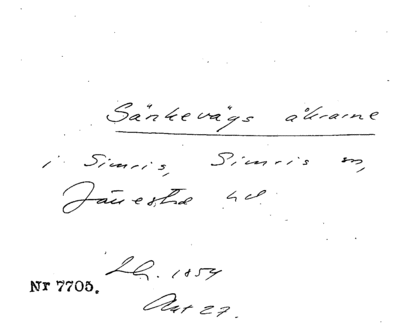 Sänkevägs åkrarne
i Simris, Simris sn,
Järrestad hd
Lh. 1854
Nr 7705.
Akt 27.